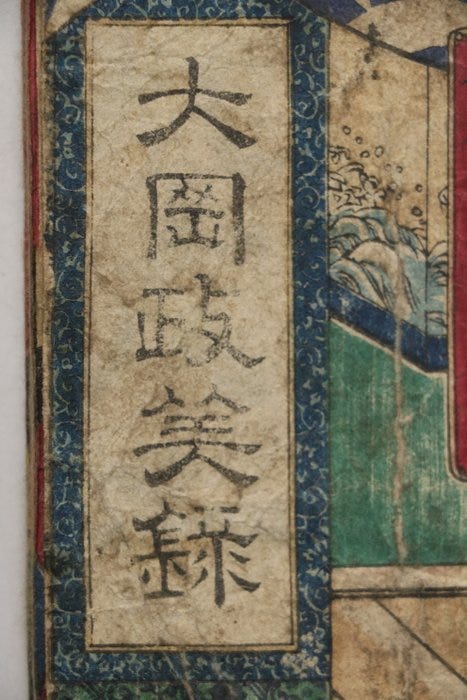 大岡政美録